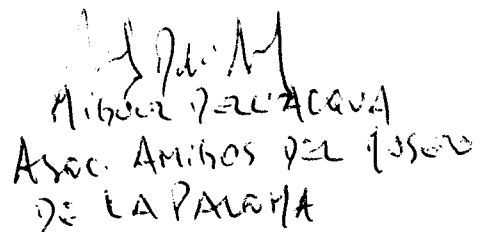 Miguel Dell'Acqua
Asoc. Amigos del Museo
de la Paloma